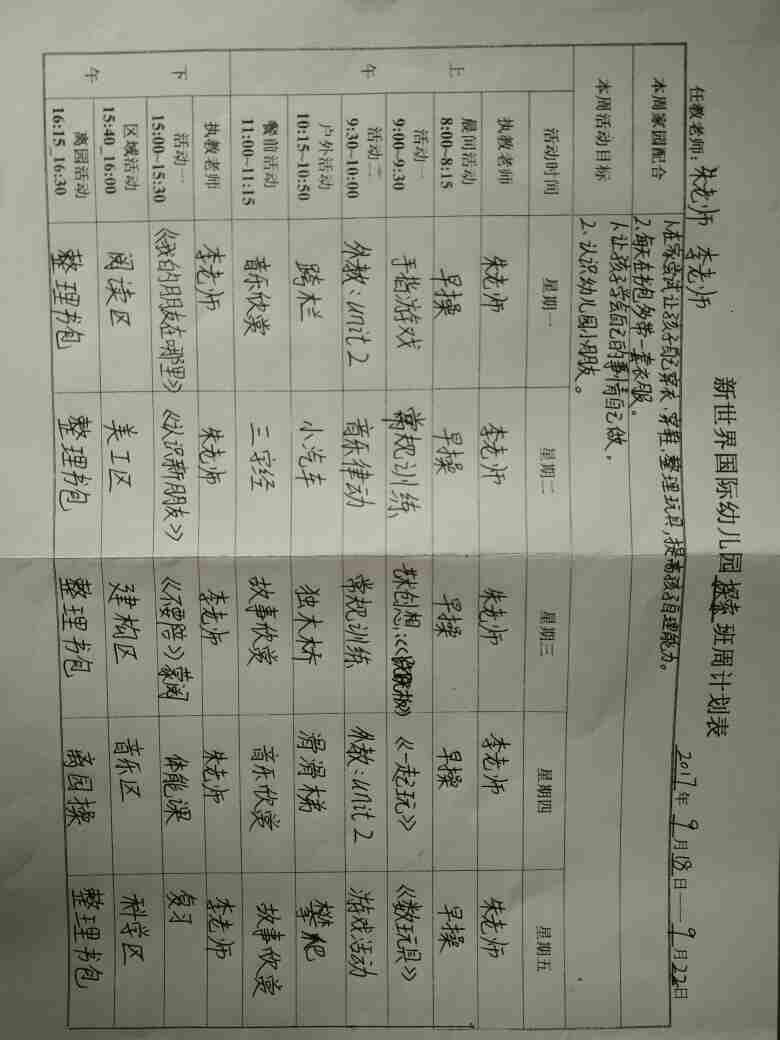 新世界国际幼儿园探索班周计划表
任教老师：朱老师 李老师 2017年9月18日——9月22日
本周家园配合 1、在家尝试让孩子自己穿衣、穿鞋、整理玩具，提高孩子自理能力。
2、每天在书包多带一套衣服。
本周活动目标 1、让孩子学会自己的事情自己做。
2、认识幼儿园小朋友。
活动时间 星期一 星期二 星期三 星期四 星期五
上午
执教老师 朱老师 李老师 朱老师 李老师 朱老师
晨间活动 8:00~8:15 早操 早操 早操 早操 早操
活动一 9:00~9:30 手指游戏 常规训练 《一起玩》 《数玩具》
活动二 9:30~10:00 外教：unit 2 音乐律动 常规训练 外教：unit 2 游戏活动
户外活动 10:15~10:50 跨栏 小汽车 独木桥 滑滑梯 攀爬
餐前活动 11:00~11:15 音乐欣赏 三字经 故事欣赏 音乐欣赏 故事欣赏
下午
执教老师 李老师 朱老师 李老师 朱老师 李老师
活动一 15:00~15:30 《我的朋友在哪里》 《认识新朋友》 《不要陪》蒙阅 体能课 复习
区域活动 15:40_16:00 阅读区 美工区 建构区 音乐区 科学区
离园活动 16:15_16:30 整理书包 整理书包 整理书包 离园操 整理书包